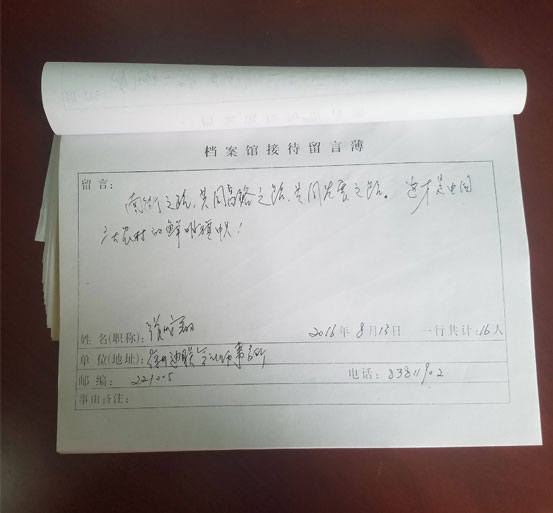 档案馆接待留言薄
留言：
南街之路，共同富路之路，共同发展之路。这才是中国
农村的鲜明旗帜！
姓名(职称)：
2016年8月13日 一行共计：16人
单位(地址)：
邮编：221205
电话：
事由备注：